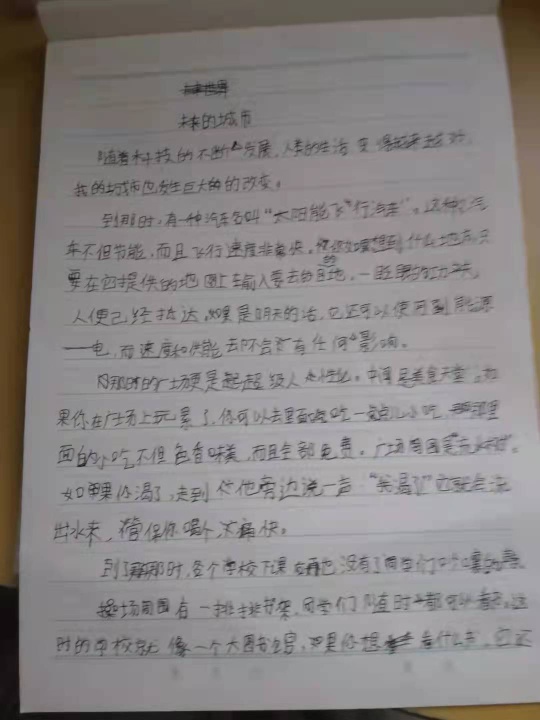 未来的城市
随着科技的不断发展,人类的生活变得越来越好,
我的城市也发生巨大的的改变。
到那时,有一种汽车名叫“太阳能飞行汽车”。这种汽
车不但节能,而且飞行速度非常快。你如果想到什么地方,只
要在它提供的地图上输入要去的目的地,一眨眼的功夫,
人便已经抵达,如果是阴天的话,它还可以使用到能源
——电,而速度和性能去不会有任何的影响。
那时的广场更是超超级人性化。中间是美食天堂,如
果你在广场上玩累了,你可以去里面吃一点儿小吃,那里
面的小吃不但色香味美,而且全部免费。广场周围是
如果你渴了,走到他旁边说一声:“我渴了”它就会流
出水来,猜保你喝个痛快。
到了那时,各个学校下课再也没有了同学们吵嚷的
操场周围有一排排书架,同学们随时都可以看书。这
时的学校就像一个大图书馆,如果你想看什么书,它还